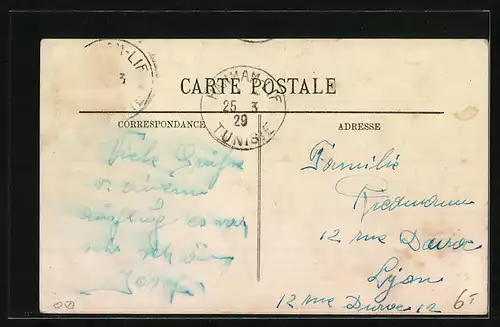 CARTE POSTALE
HAMMAM-LIF
25 3
29
TUNISIE
M-LIF
3
CORRESPONDANCE
ADRESSE
Viele Grüße
v. einem
Ausflug es war
sehr schön
Josef
Familie
Riedmann
12 rue
Lyon
12 rue 12